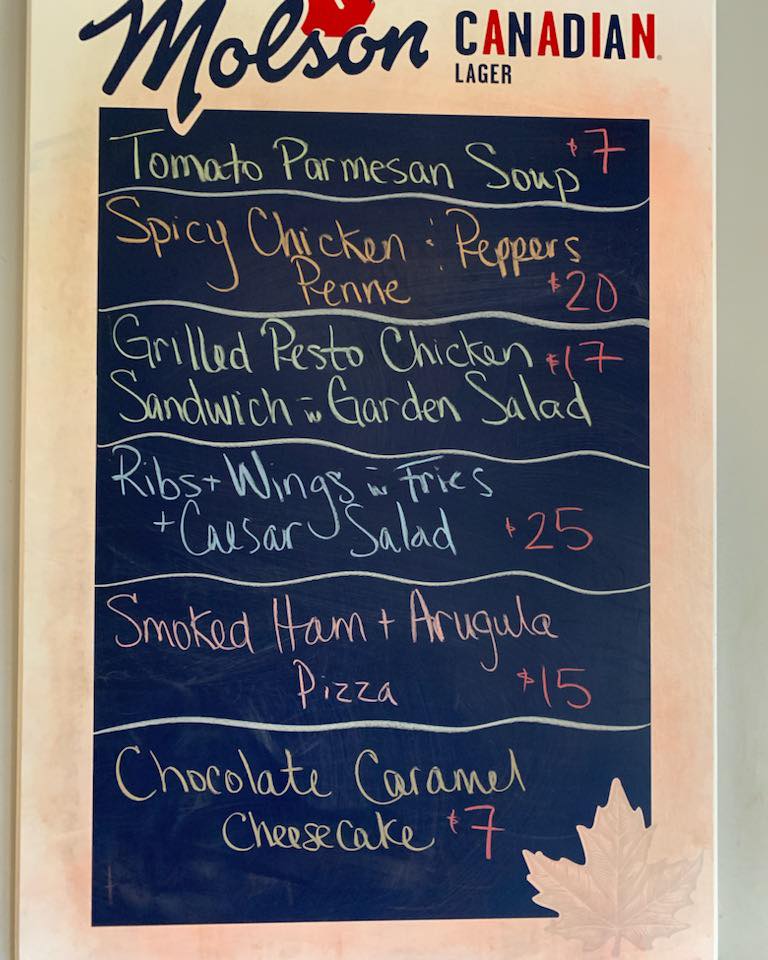 Molson CANADIAN
LAGER
Tomato Parmesan Soup $7
Spicy Chicken : Peppers
Penne $20
Grilled Pesto Chicken $17
Sandwich w Garden Salad
Ribs + Wings w Fries
+ Caesar Salad $25
Smoked Ham + Arugula
Pizza $15
Chocolate Caramel
Cheesecake $7